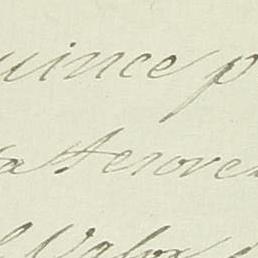 uince p
ta Herove
l Valor d